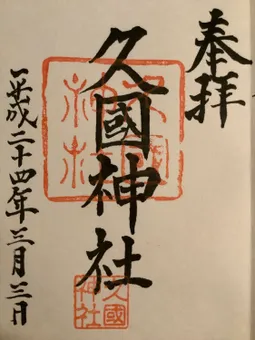 奉拝
久國神社
久國
神社
久國
神社
平成二十四年三月三日